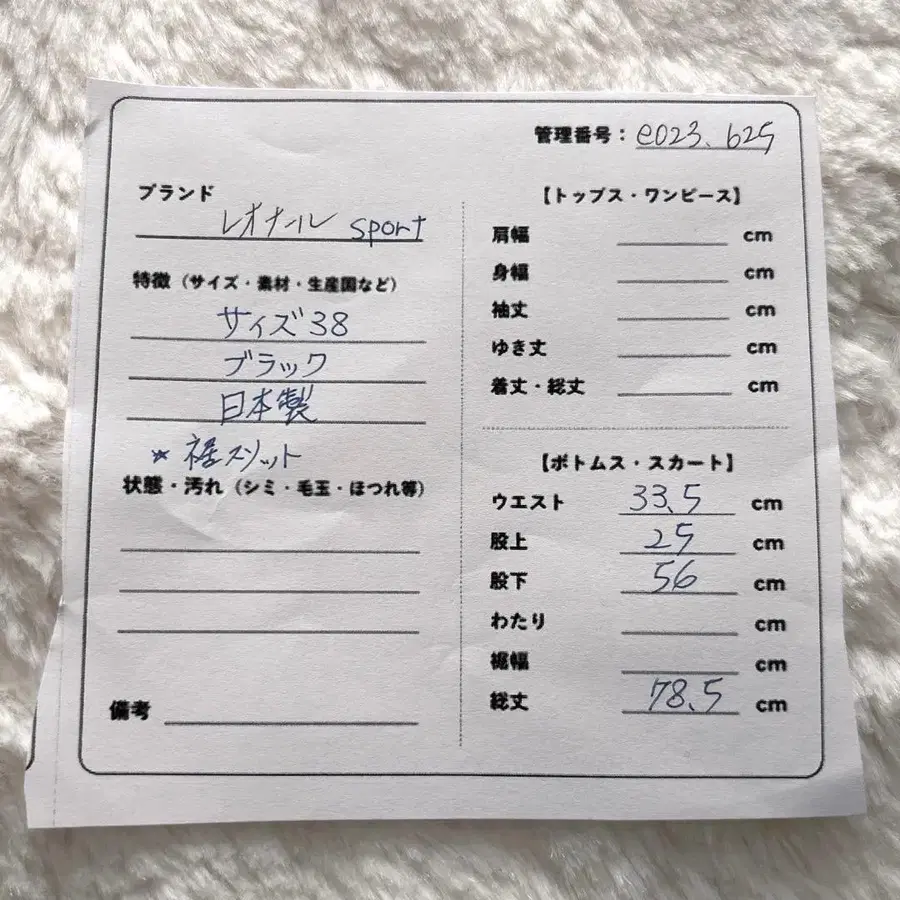 管理番号：e023.625
ブランド
レオナール sport
特徴（サイズ・素材・生産国など）
サイズ38
ブラック
日本製
☆ 裾スリット
状態・汚れ（シミ・毛玉・ほつれ等）
備考
【トップス・ワンピース】
肩幅 cm
身幅 cm
袖丈 cm
ゆき丈 cm
着丈・総丈 cm
【ボトムス・スカート】
ウエスト 33.5 cm
股上 25 cm
股下 56 cm
わたり cm
裾幅 cm
総丈 78.5 cm